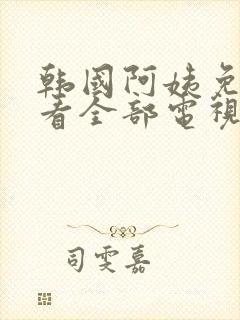 韩國阿姨免
看全部電視
司雯嘉